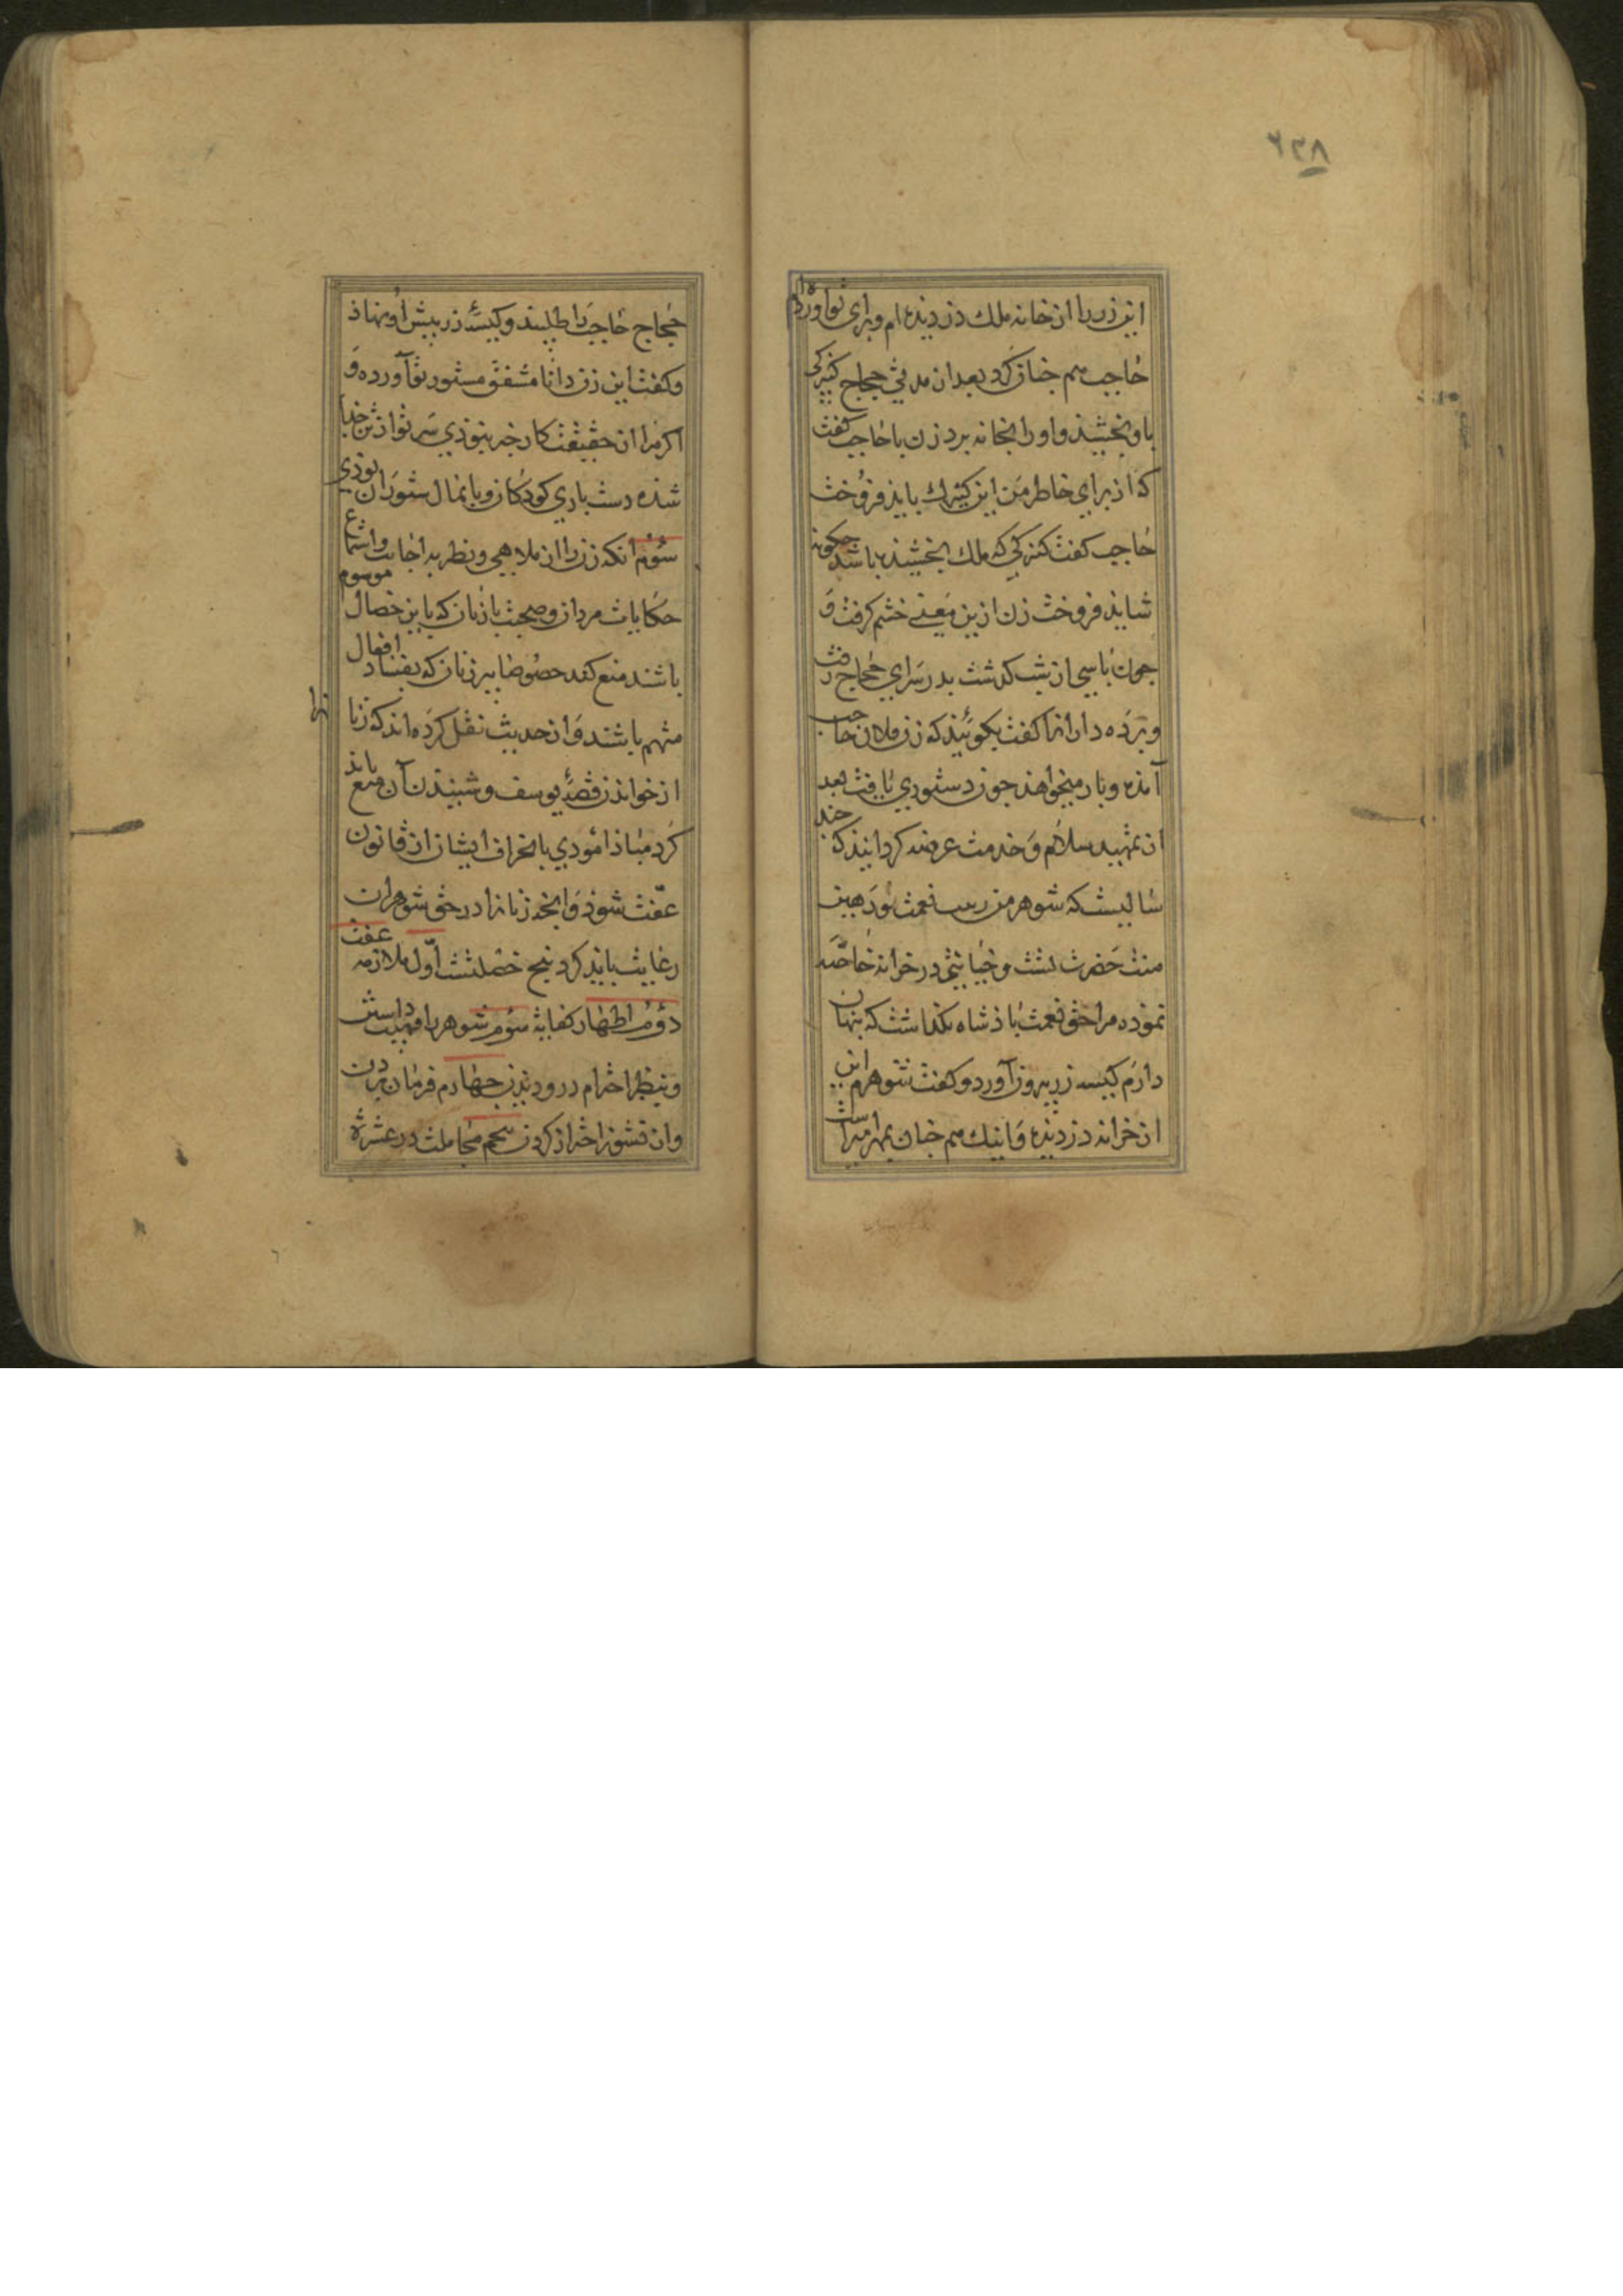 ۶۳۸
این زر را از خانه ملك دزدیذه ام و برای تو آورده ام
حاجب هم جنان كرد بعد از مدتی حجاج كنیزكی
باو بخشیذ و او را بخانه برد زن با حاجب كفت
كه از برای خاطر من این كنیزك بایذ فروخت
حاجب كفت كنیزكی كه ملك بخشیذه باشد جكونه
شایذ فروخت زن ازین معنی خشم كرفت و
جون پاسی از شب كذشت بدر سرای حجاج رفت
و برده دار را كفت بكوئیذ كه زن فلان حاجب
آمذه و بار میخواهذ جون دستوری یافت بعد
از تمهید سلام و خدمت عرضه كردانیذ كه جند
سالیست كه شوهر من ربیب نعمت تو و رهین
منت حضرت تست و خیانتی در خزانه خاصه
نموذه مرا حق نعمت باذشاه نكذاشت كه بنهان
دارم كیسه زر بیرون آورد و كفت شوهرم این
از خزانه دزدیذه و اینك هم جنان بمهر امیر است
حجاج حاجب را طلبیذ و كیسهٔ زر بیش او نهاذ
و كفت این زن دانا مشفق مستور تو آورده و
اكر مرا از حقیقت كار خبر نبوذی سر تو از تن جدا
شذه دست بازی كوذكان و پایمال ستوران بوذی
سوم آنكه زن را از ملاهی و نظر به اجانب و استماع
حكایات مردان و صحبت با زنان كه باین خصال موسوم
باشند منع كند خصوصا پیر زنان كه بفساد افعال
متهم باشند و از حدیث نقل كرده اند كه زنانرا
از خواندن قصهٔ یوسف و شنیذن آن منع بایذ
كرد مباذا مودی با انحراف ایشان از قانون
عفت شوذ و آنجه زنانرا در حق شوهران
رعایت بایذ كرد بنج خصلتست اول ملازمه عفت
دوم اظهار كفایة سوم شوهر را مهیب داشتن
و بنظر احترام درو دیذن جهارم فرمان بردن
و از نشوز احتراز كردن بنجم مجاملت در عشرة